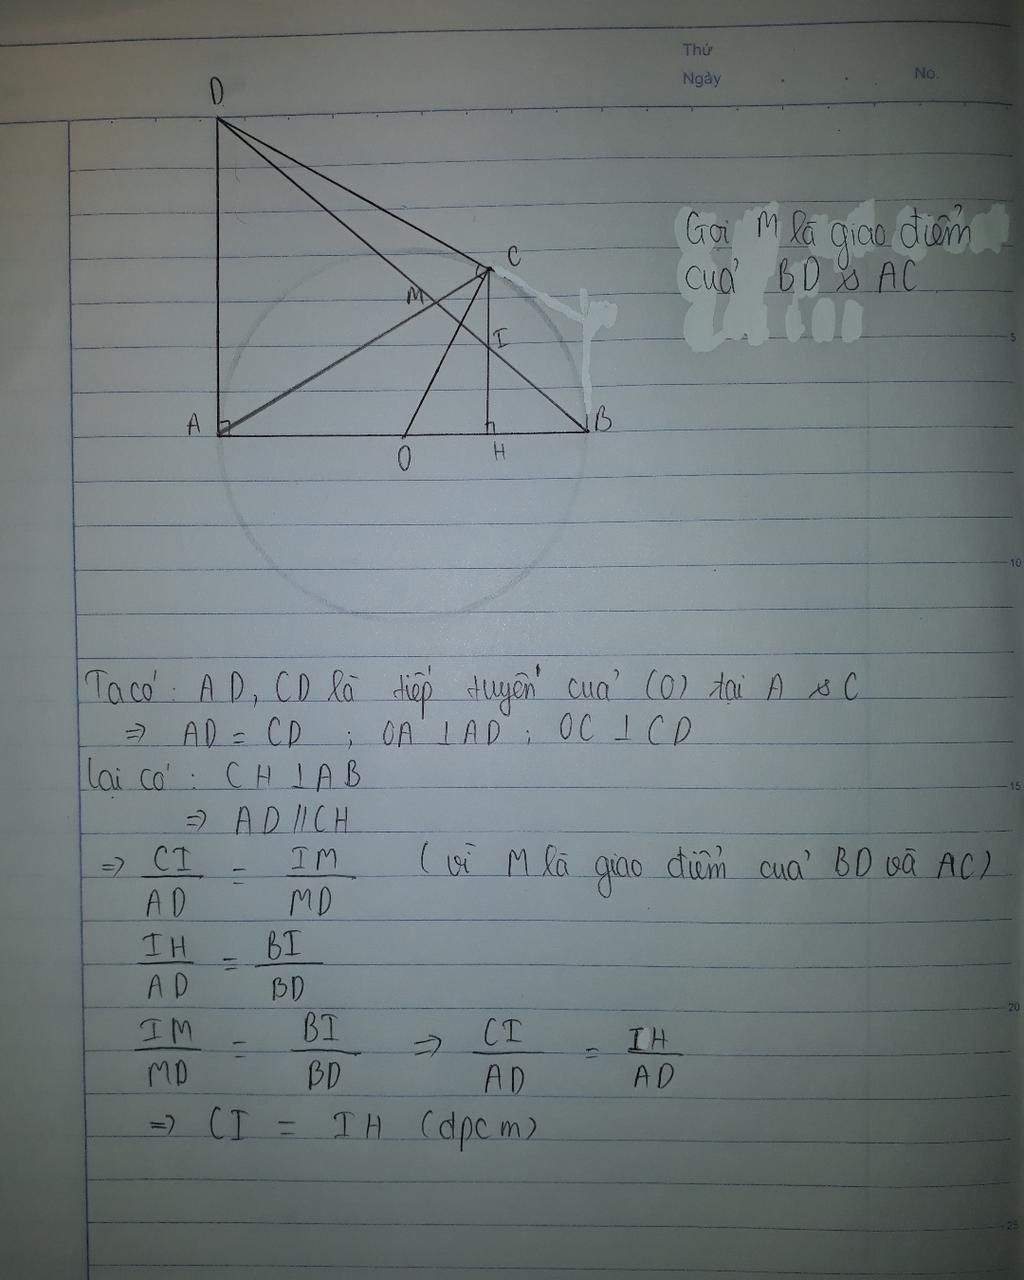 Thứ
Ngày . . No.
D
Gọi M là giao điểm
của BD và AC
C
M
I
A
B
O
H
5
10
Ta có : AD, CD là tiếp tuyến của (O) tại A và C
⇒ AD = CD ; OA ⊥ AD ; OC ⊥ CD
lại có : CH ⊥ AB
15
⇒ AD // CH
⇒ CI/AD = IM/MD (vì M là giao điểm của BD và AC)
IH/AD = BI/BD
20
IM/MD = BI/BD ⇒ CI/AD = IH/AD
⇒ CI = IH (dpcm)
25